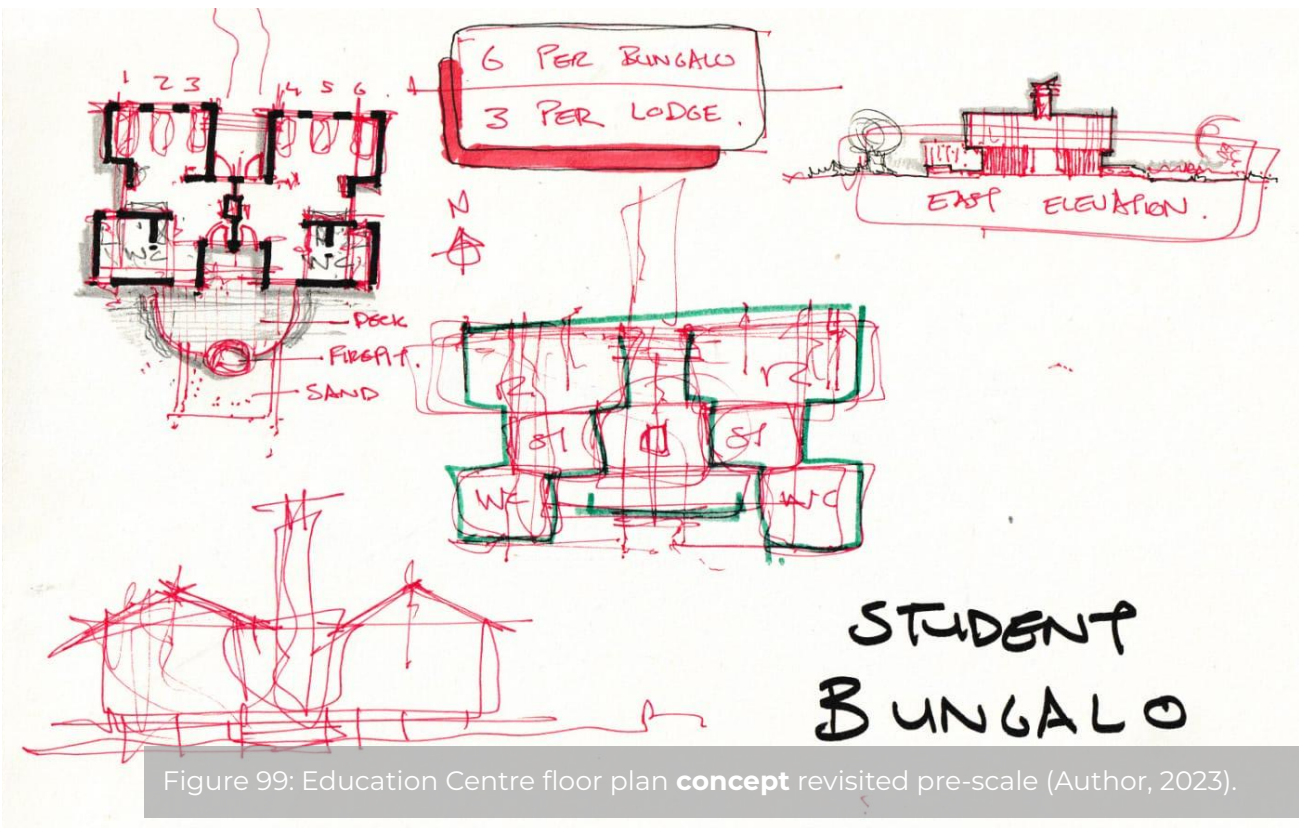 1 2 3 4 5 6
6 PER BUNGALO
3 PER LODGE.
EAST ELEVATION.
N
WC WC
DECK
FIREPIT.
SAND
ST ST
WC WC
STUDENT
BUNGALO
Figure 99: Education Centre floor plan concept revisited pre-scale (Author, 2023).